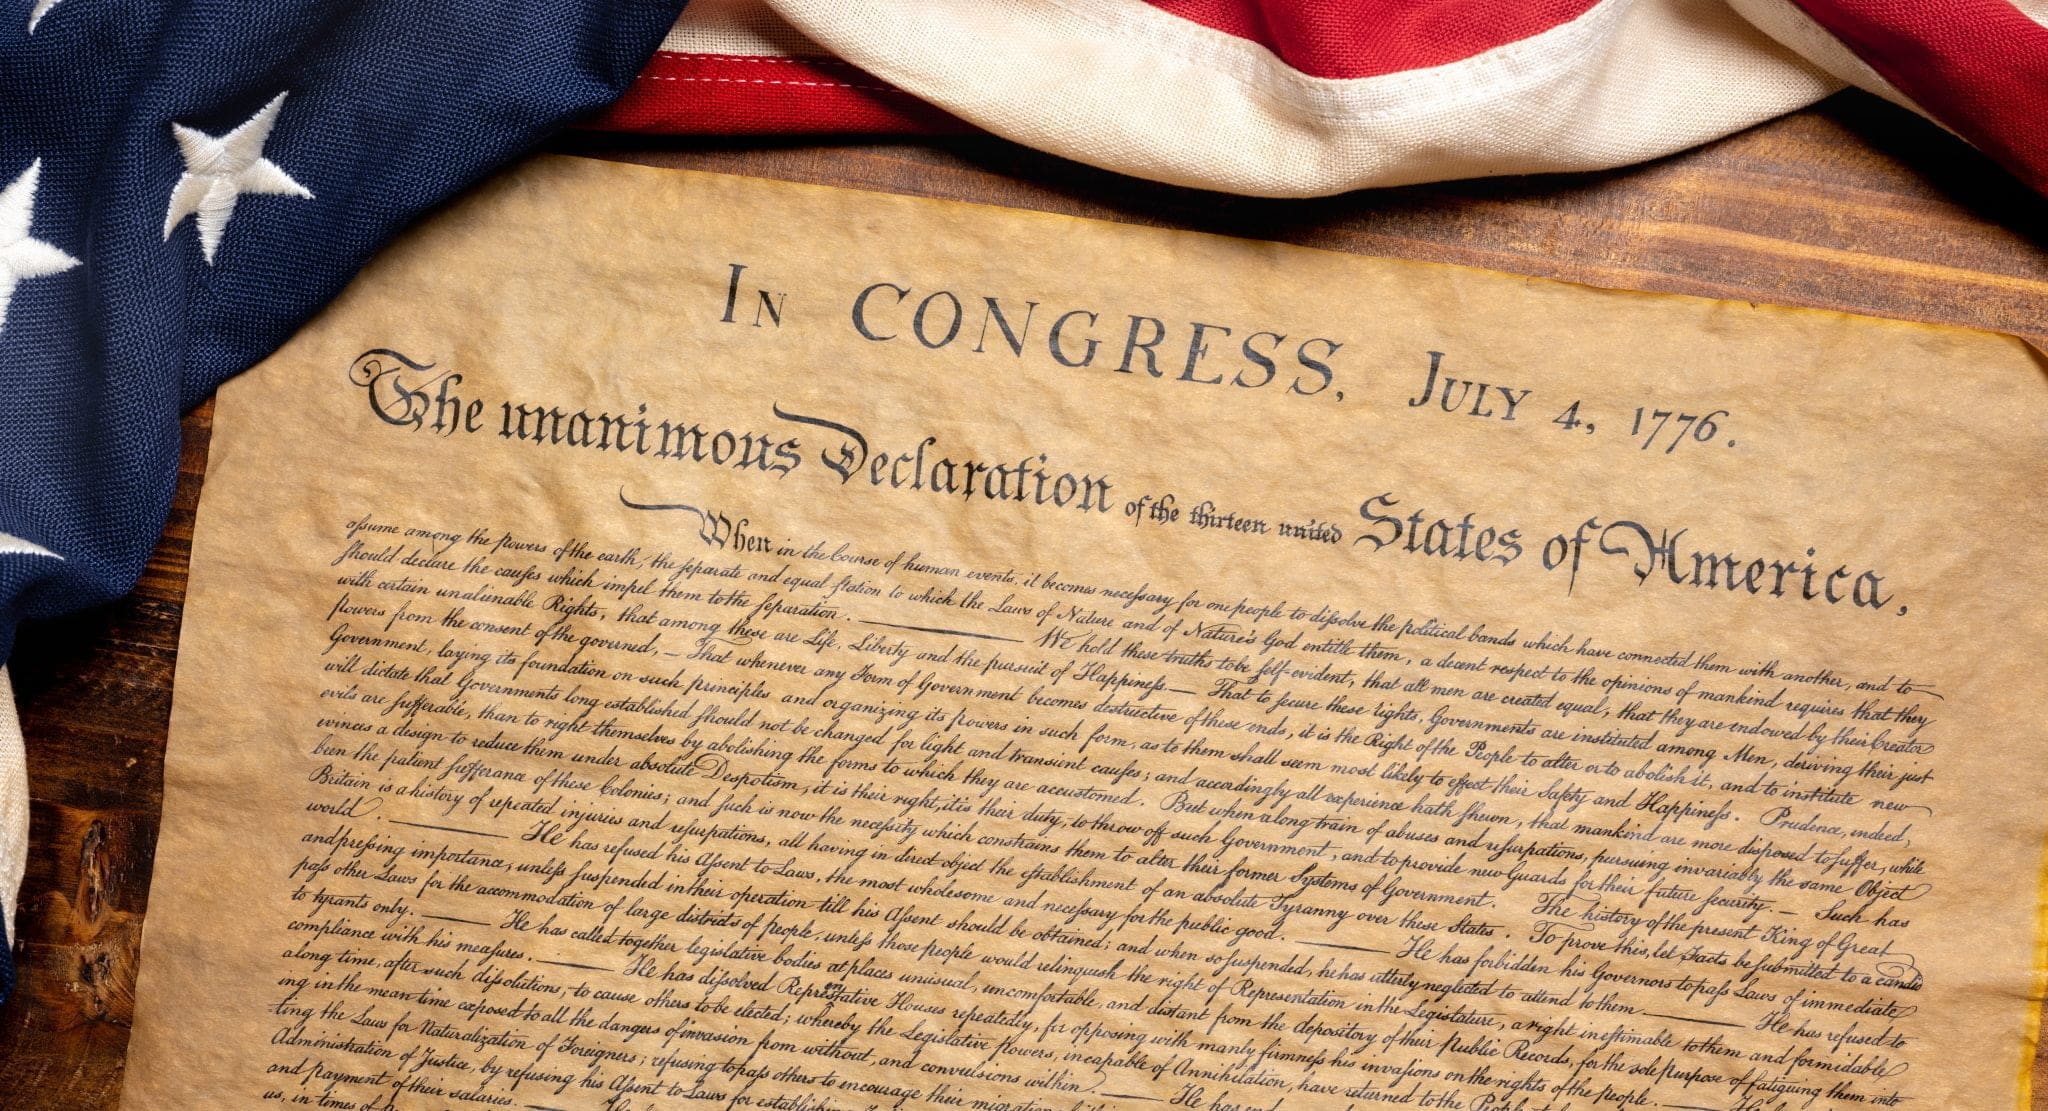 In CONGRESS, July 4, 1776.
The unanimous Declaration of the thirteen united States of America,
When in the Course of human events, it becomes necessary for one people to dissolve the political bands which have connected them with another, and to
assume among the powers of the earth, the separate and equal station to which the Laws of Nature and of Nature's God entitle them, a decent respect to the opinions of mankind requires that they
should declare the causes which impel them to the separation. — We hold these truths to be self-evident, that all men are created equal, that they are endowed by their Creator
with certain unalienable Rights, that among these are Life, Liberty and the pursuit of Happiness. — That to secure these rights, Governments are instituted among Men, deriving their just
powers from the consent of the governed, — That whenever any Form of Government becomes destructive of these ends, it is the Right of the People to alter or to abolish it, and to institute new
Government, laying its foundation on such principles and organizing its powers in such form, as to them shall seem most likely to effect their Safety and Happiness. Prudence, indeed,
will dictate that Governments long established should not be changed for light and transient causes; and accordingly all experience hath shewn, that mankind are more disposed to suffer, while
evils are sufferable, than to right themselves by abolishing the forms to which they are accustomed. But when a long train of abuses and usurpations, pursuing invariably the same Object
evinces a design to reduce them under absolute Despotism, it is their right, it is their duty, to throw off such Government, and to provide new Guards for their future security. — Such has
been the patient sufferance of these Colonies; and such is now the necessity which constrains them to alter their former Systems of Government. The history of the present King of Great
Britain is a history of repeated injuries and usurpations, all having in direct object the establishment of an absolute Tyranny over these States. To prove this, let Facts be submitted to a candid
world. — He has refused his Assent to Laws, the most wholesome and necessary for the public good. — He has forbidden his Governors to pass Laws of immediate
and pressing importance, unless suspended in their operation till his Assent should be obtained; and when so suspended, he has utterly neglected to attend to them. — He has refused to
pass other Laws for the accommodation of large districts of people, unless those people would relinquish the right of Representation in the Legislature, a right inestimable to them and formidable
to tyrants only. — He has called together legislative bodies at places unusual, uncomfortable, and distant from the depository of their public Records, for the sole purpose of fatiguing them into
compliance with his measures. — He has dissolved Representative Houses repeatedly, for opposing with manly firmness his invasions on the rights of the people. — He
along time, after such dissolutions, to cause others to be elected; whereby the Legislative powers, incapable of Annihilation, have returned to the People
ing in the mean time exposed to all the dangers of invasion from without, and convulsions within. — He has
ting the Laws for Naturalization of Foreigners; refusing to pass others to encourage their migration
Administration of Justice, by refusing his Assent to Laws for
and payment of their salaries. —
us, in times of